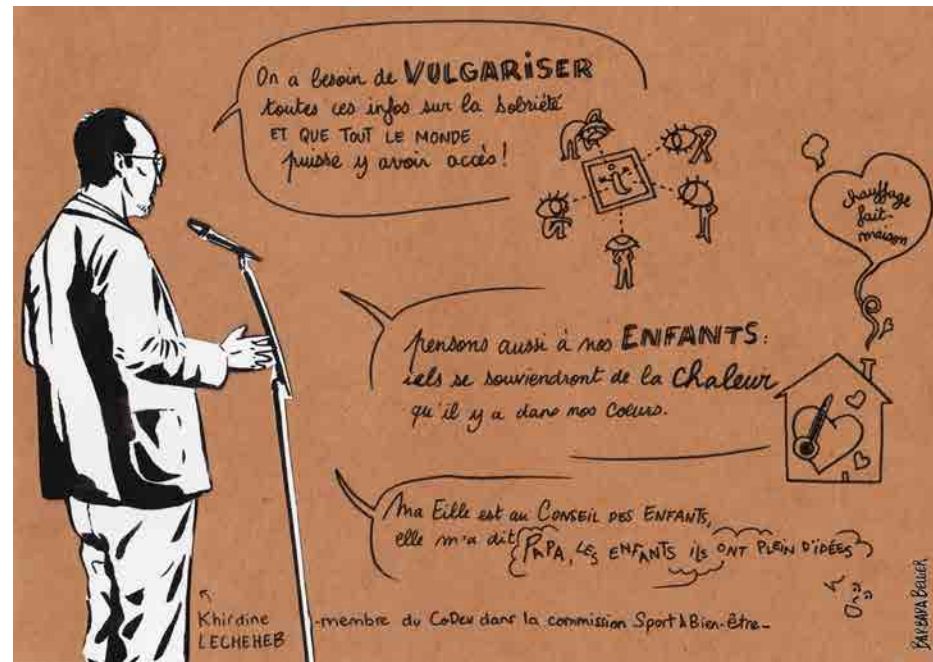 On a besoin de VULGARISER
toutes ces infos sur la sobriété
ET QUE TOUT LE MONDE
puisse y avoir accès !
chauffage
fait-
maison
pensons aussi à nos ENFANTS :
iels se souviendront de la chaleur
qu'il y a dans nos coeurs.
Ma Fille est au CONSEIL DES ENFANTS,
elle m'a dit PAPA, LES ENFANTS ils ONT PLEIN D'IDÉES
Khirdine
LECHEHEB
-membre du CoDev dans la commission Sport & Bien-être-
BARBARA BELLIER